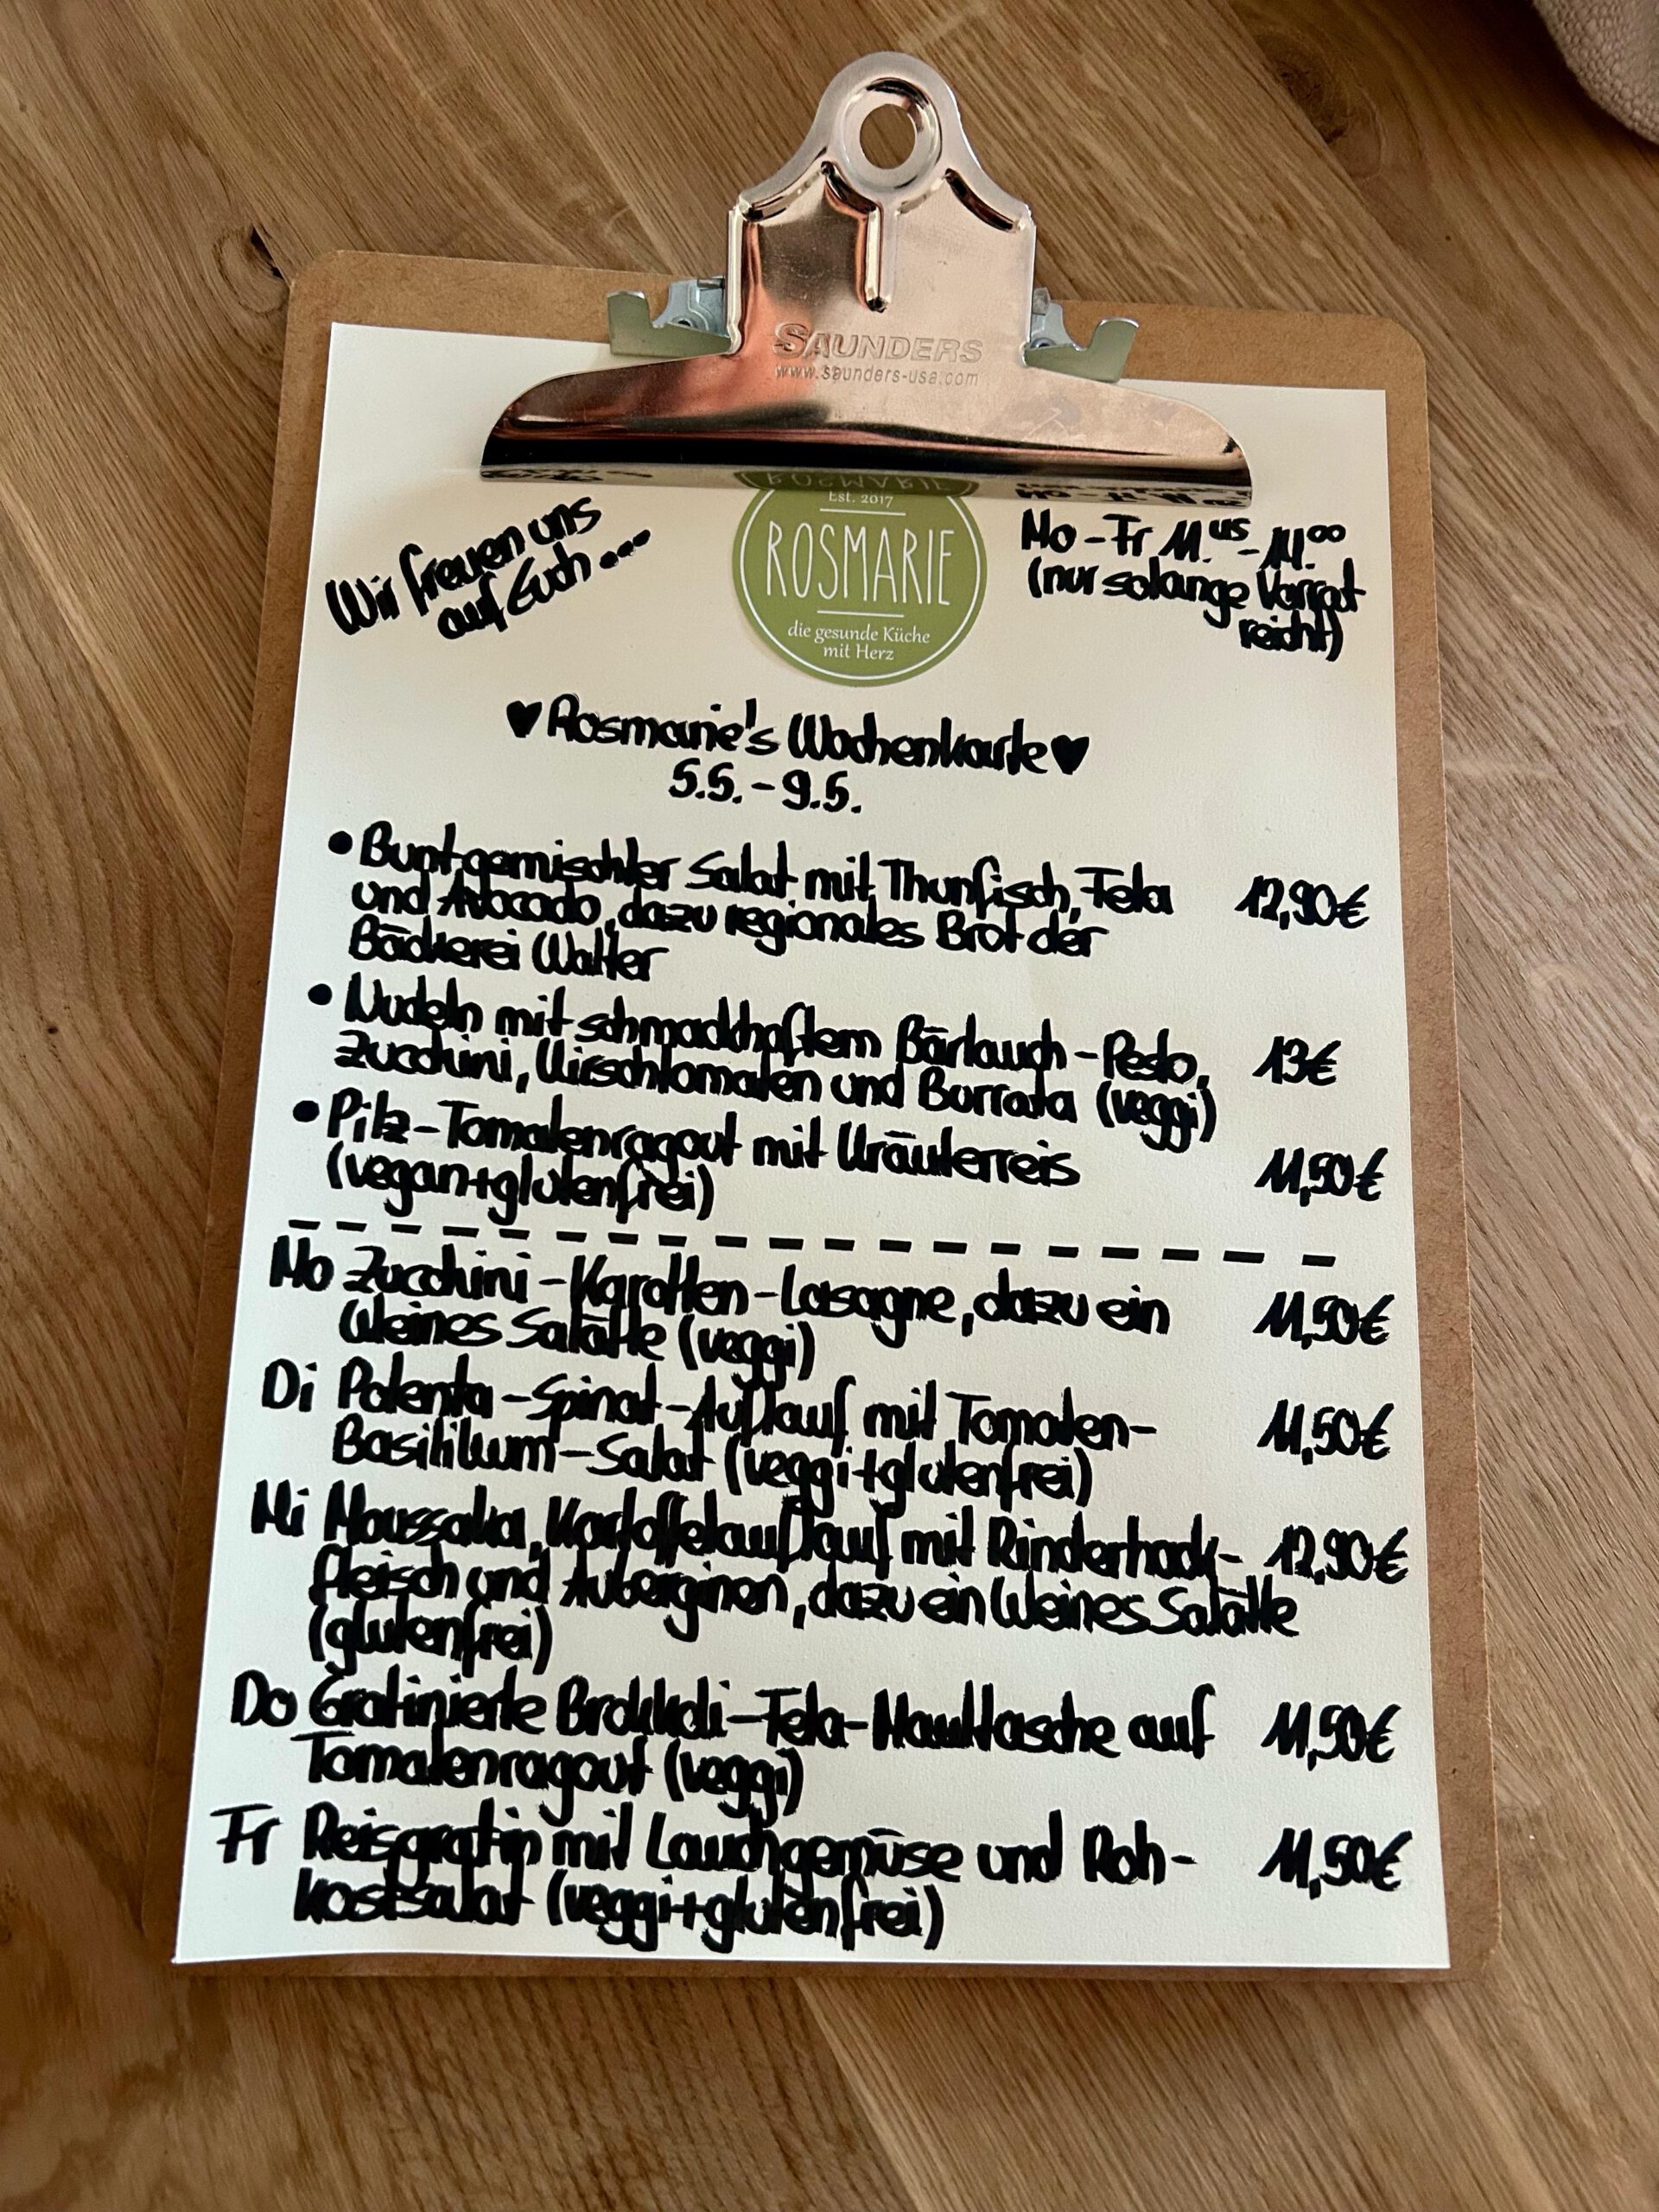 SAUNDERS
www.saunders-usa.com
Wir freuen uns
auf Euch...
Est. 2017
ROSMARIE
die gesunde Küche
mit Herz
Mo-Fr 11.45-14.00
(nur solange Vorrat
reicht)
♥ Rosmarie's Wochenkarte ♥
5.5.-9.5.
• Bunt gemischter Salat mit Thunfisch, Feta 12,90€
und Avocado, dazu regionales Brot der
Bäckerei Walter
• Nudeln mit schmackhaftem Bärlauch-Pesto, 13€
Zucchini, Kirschtomaten und Burrata (veggi)
• Pilz-Tomatenragout mit Kräuterreis 11,50€
(vegan+glutenfrei)
Mo Zucchini-Karotten-Lasagne, dazu ein 11,50€
kleines Salätle (veggi)
Di Polenta-Spinat-Auflauf mit Tomaten- 11,50€
Basilikum-Salat (veggi+glutenfrei)
Mi Moussaka, Kartoffelauflauf mit Rinderhack- 12,90€
fleisch und Auberginen, dazu ein kleines Salätle
(glutenfrei)
Do Gratinierte Brokkoli-Feta-Maultasche auf 11,50€
Tomatenragout (veggi)
Fr Reisgratin mit Lauchgemüse und Roh- 11,50€
kostsalat (veggi+glutenfrei)